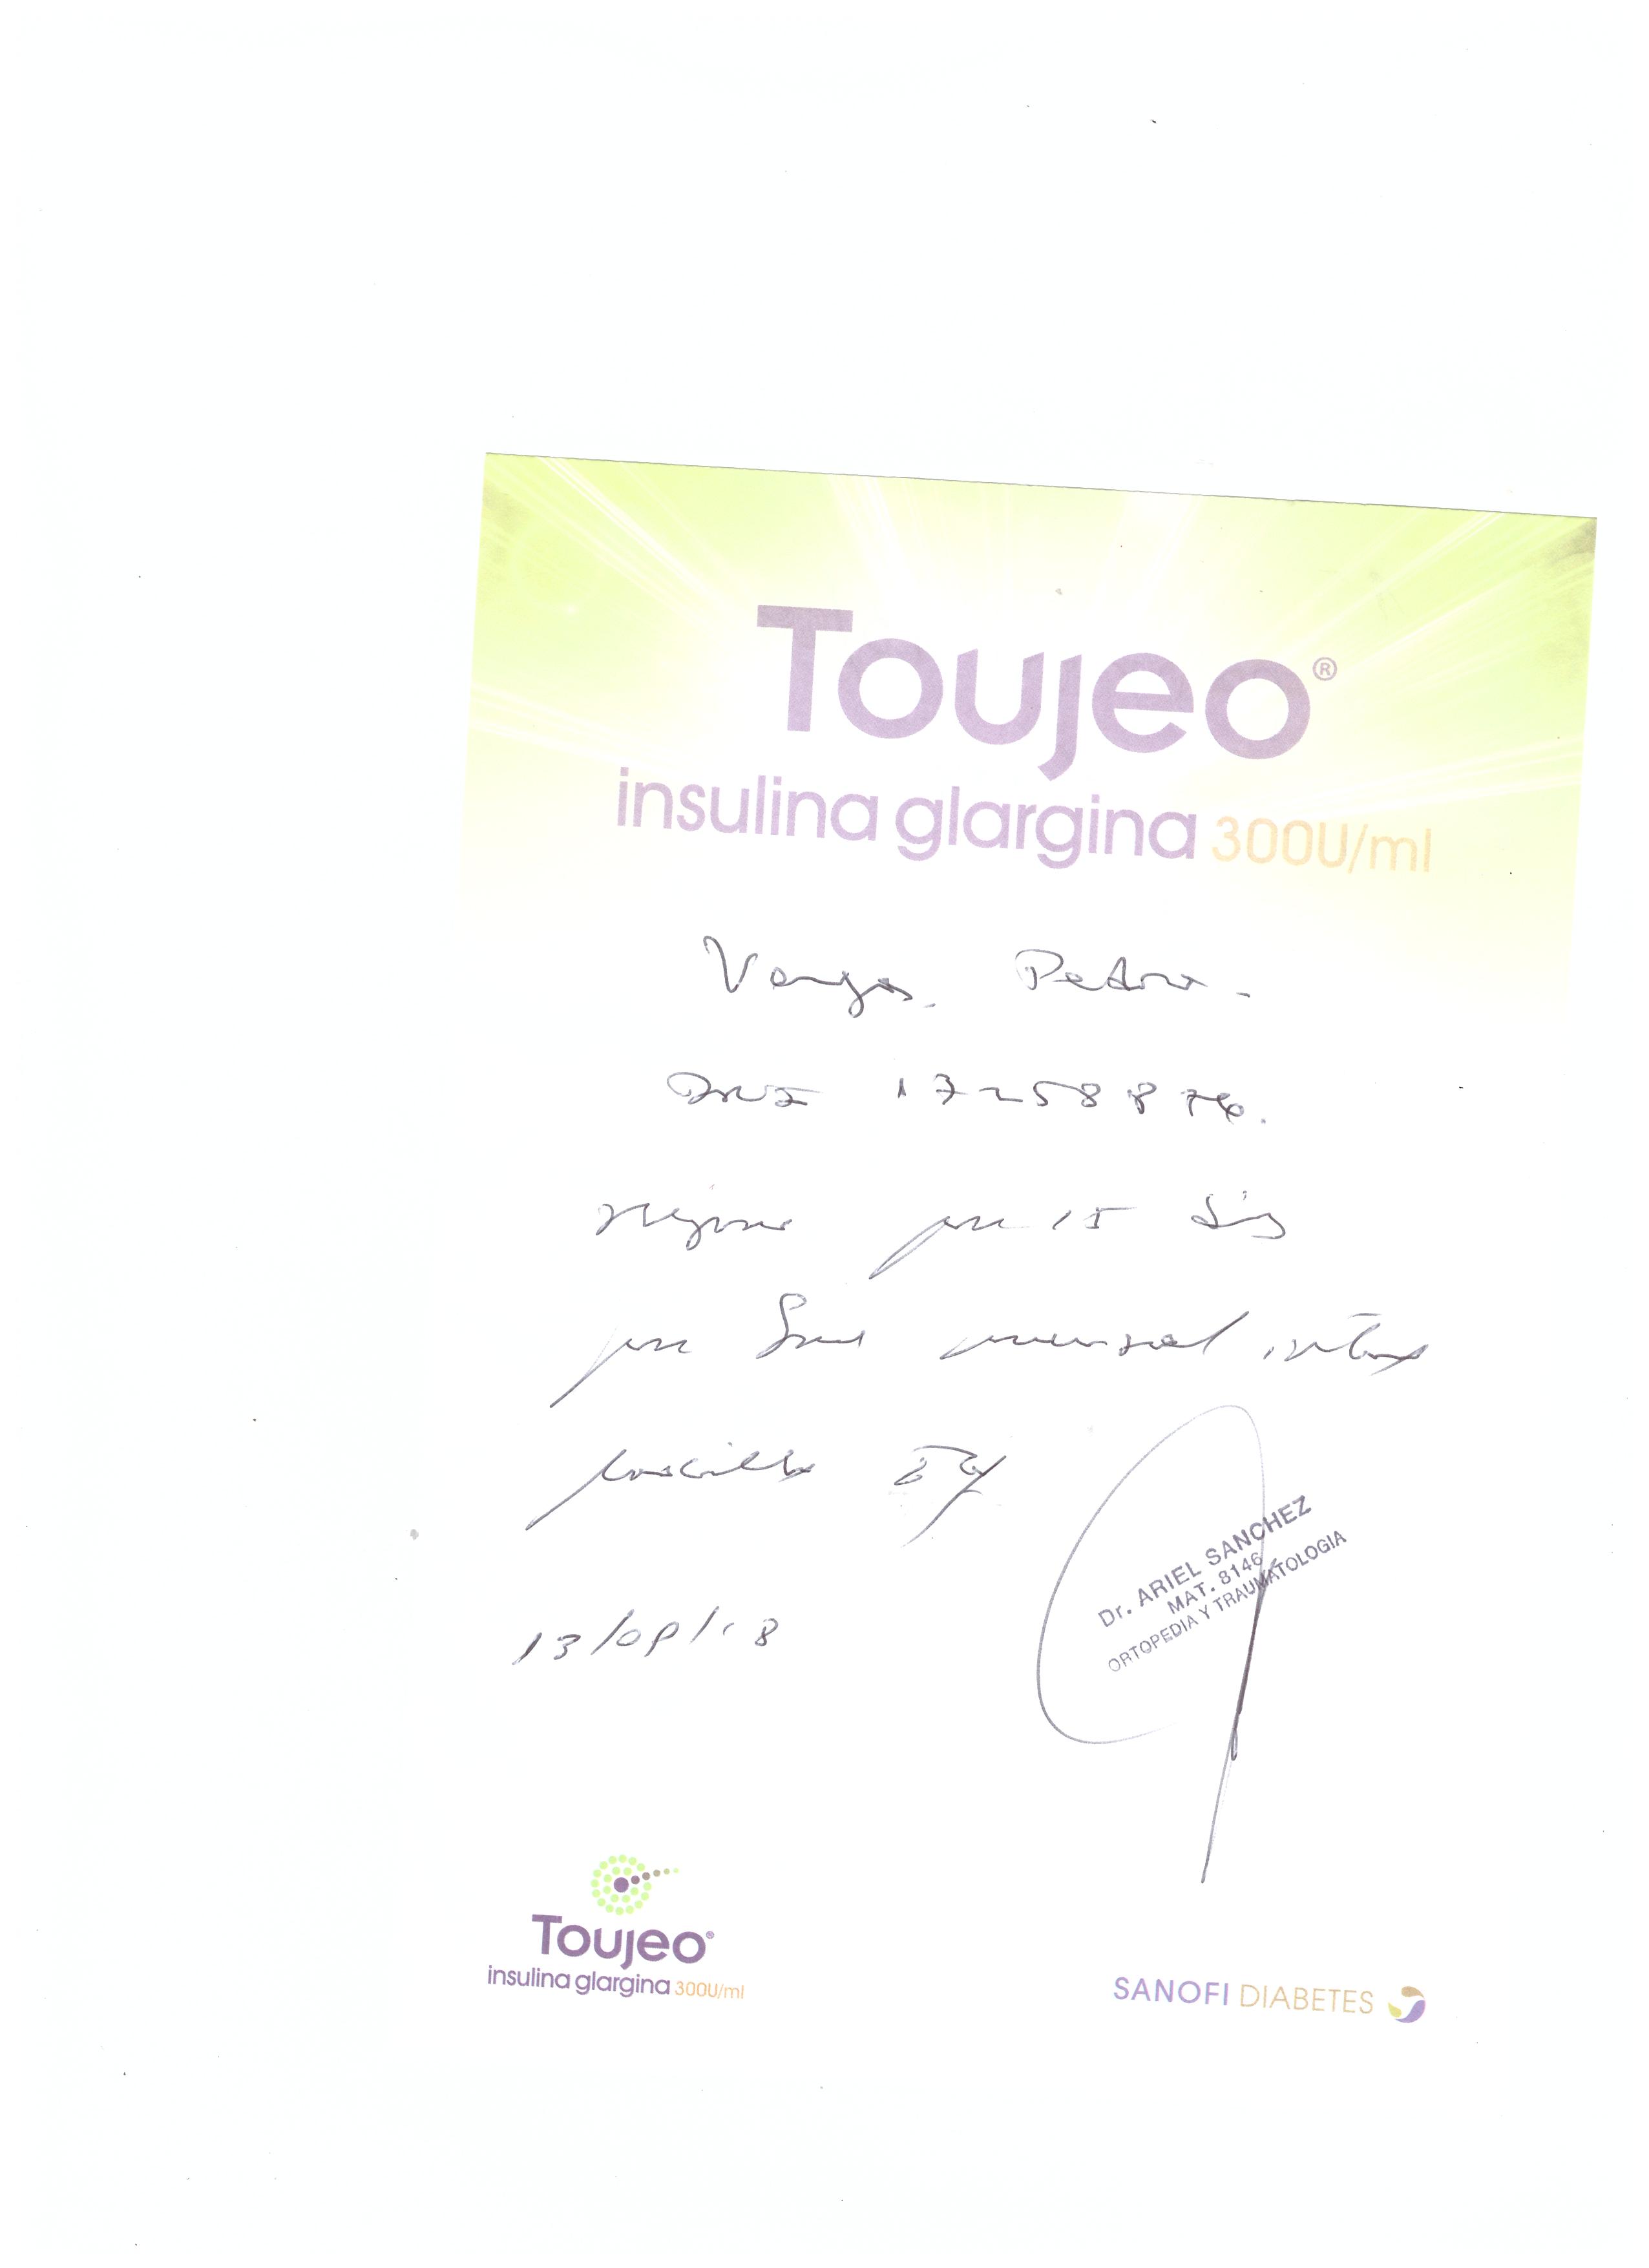 Toujeo®
insulina glargina 300U/ml
Vargas. Pedro.
DNI 17258876.
por 15 días
por
rodilla
13/08/18
Dr. ARIEL SANCHEZ
MAT. 8146
ORTOPEDIA Y TRAUMATOLOGIA
Toujeo®
insulina glargina 300U/ml
SANOFI DIABETES